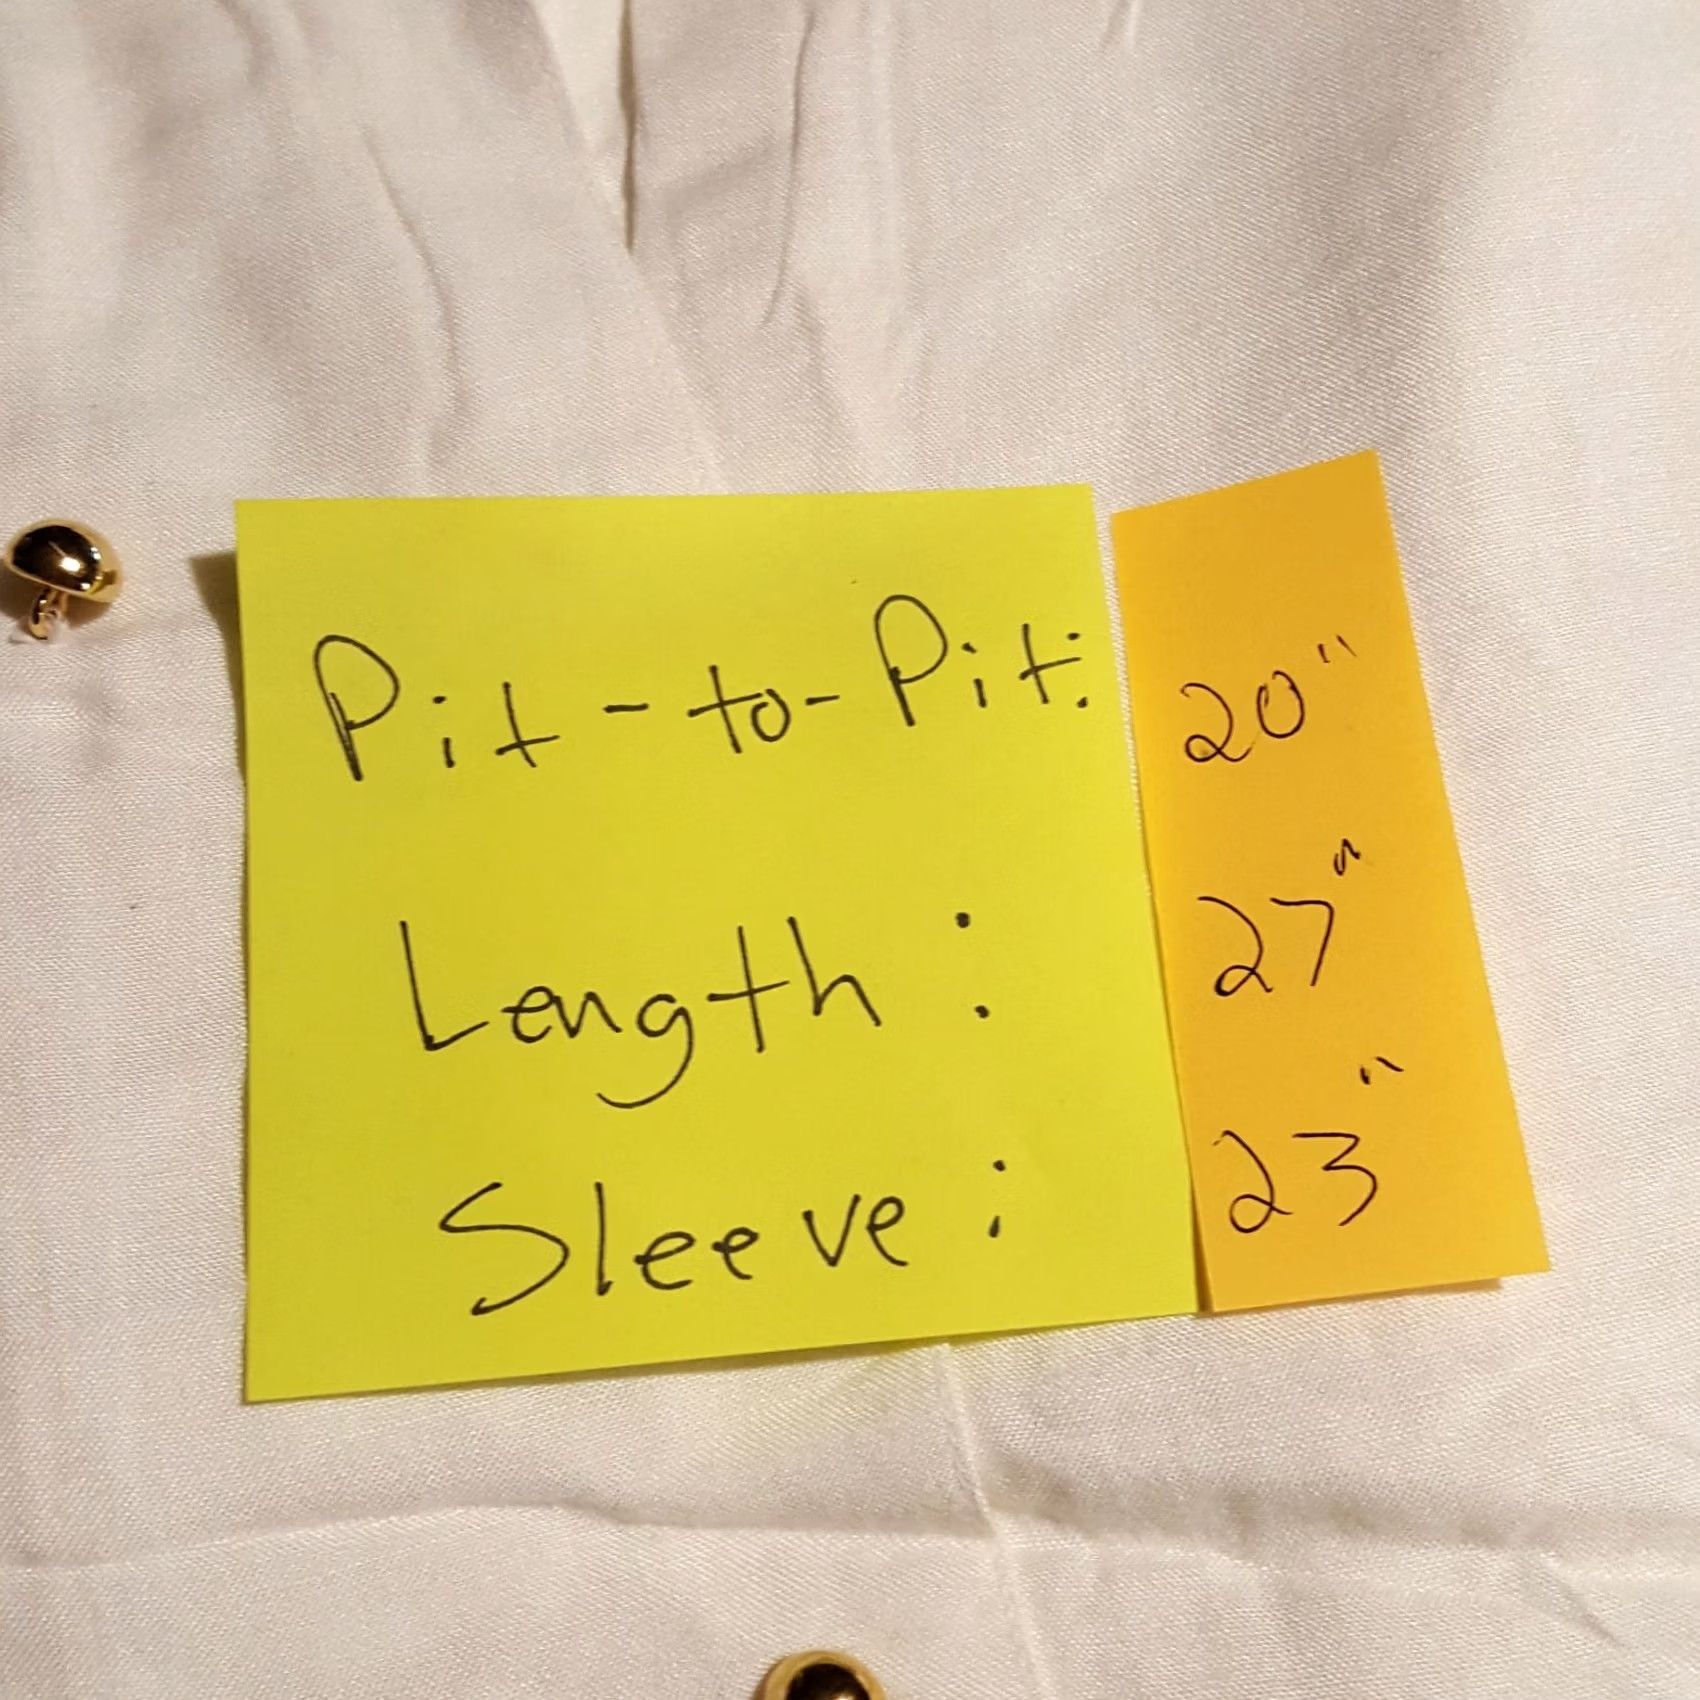 Pit-to-Pit: 20"
Length: 27"
Sleeve: 23"